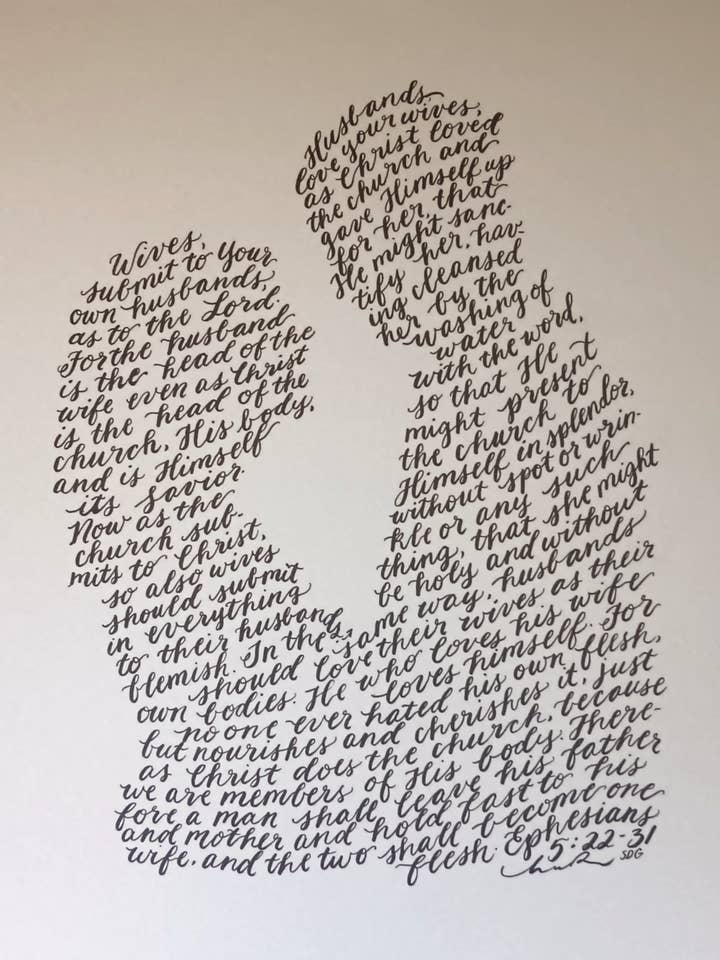 Wives,
submit to your
own husbands,
as to the Lord.
For the husband
is the head of the
wife even as Christ
is the head of the
church, His body,
and is Himself
its Savior.
Now as the
church sub-
mits to Christ,
so also wives
should submit
in everything
to their husbands.
Husbands
love your wives,
as Christ loved
the church and
gave Himself up
for her, that
He might sanc-
tify her, hav-
ing cleansed
her by the
washing of
water
with the word,
so that He
might present
the church to
Himself in splendor,
without spot or wrin-
kle or any such
thing, that she might
be holy and without
blemish. In the same way, husbands
should love their wives as their
own bodies. He who loves his wife
loves himself. For
no one ever hated his own flesh,
but nourishes and cherishes it, just
as Christ does the church, because
we are members of His body. There-
fore a man shall leave his father
and mother and hold fast to his
wife, and the two shall become one
flesh. Ephesians
5:22-31
SDG